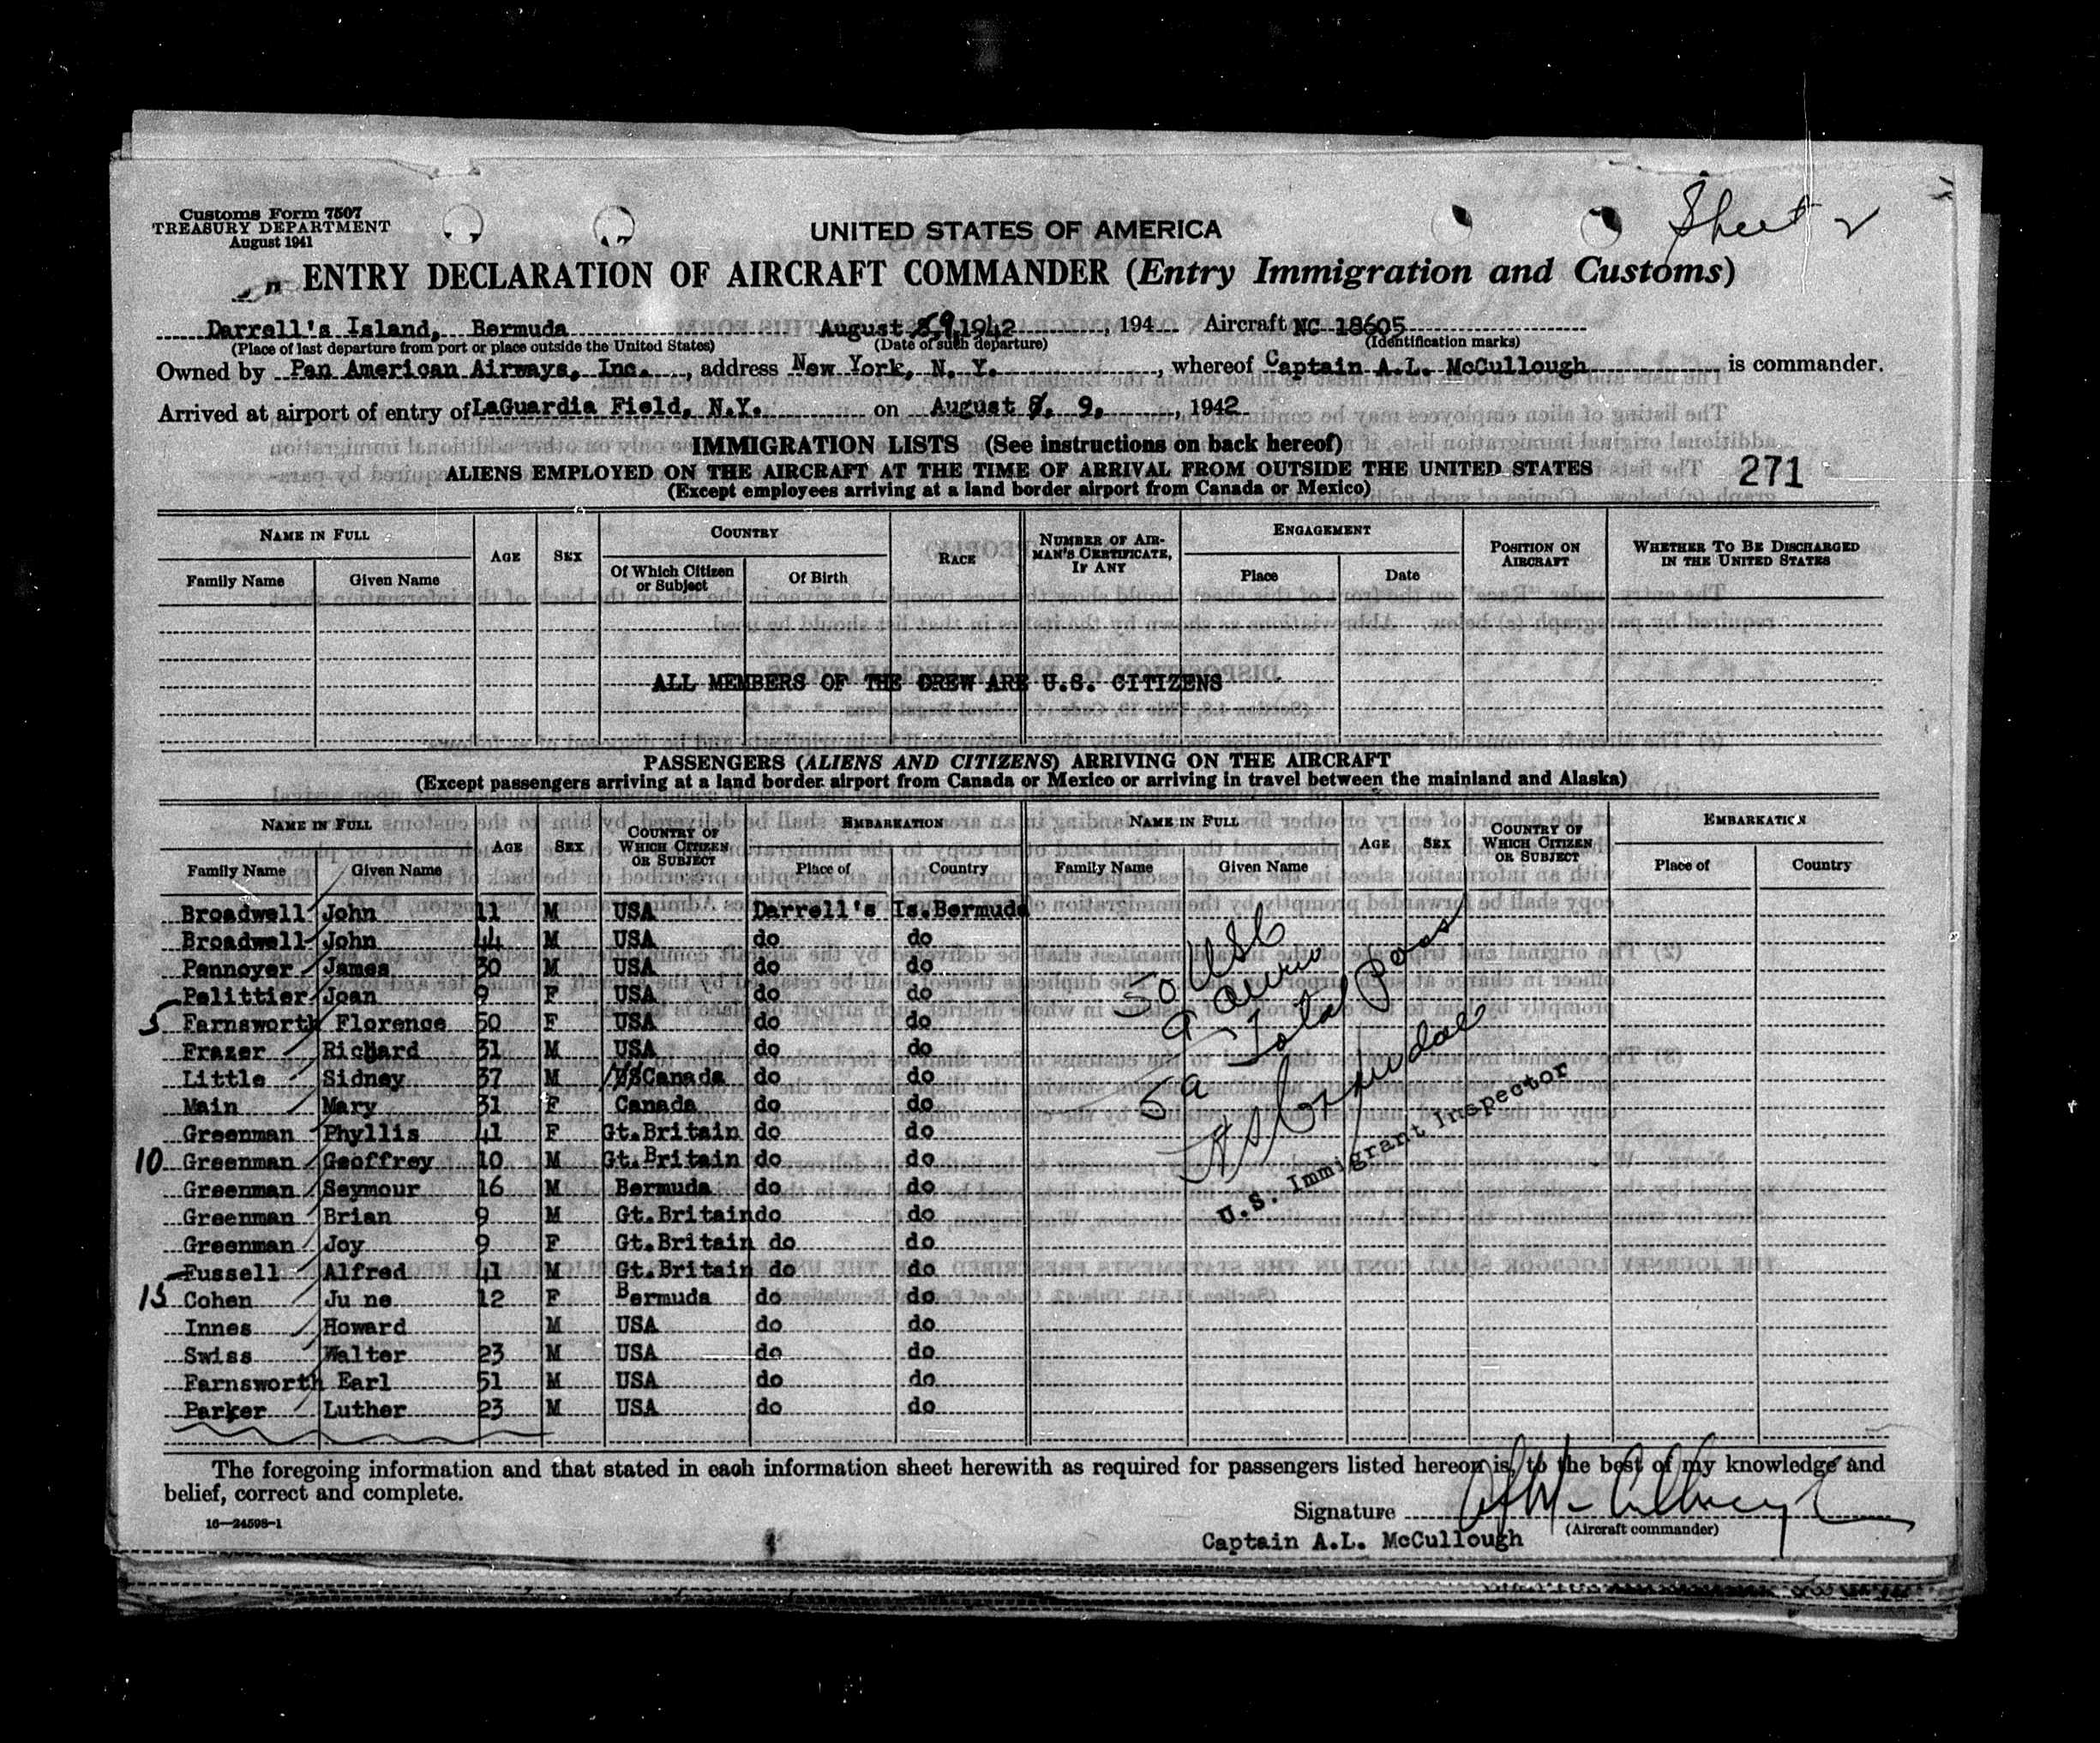 Sheet 2
Customs Form 7507
TREASURY DEPARTMENT
August 1941
UNITED STATES OF AMERICA
ENTRY DECLARATION OF AIRCRAFT COMMANDER (Entry Immigration and Customs)
Darrell's Island, Bermuda August 8 9, 1942, 194 Aircraft NC 18605
(Place of last departure from port or place outside the United States) (Date of such departure) (Identification marks)
Owned by Pan American Airways, Inc., address New York, N. Y., whereof Captain A.L. McCullough is commander.
Arrived at airport of entry of LaGuardia Field, N.Y. on August 8, 9, 1942
IMMIGRATION LISTS (See instructions on back hereof)
ALIENS EMPLOYED ON THE AIRCRAFT AT THE TIME OF ARRIVAL FROM OUTSIDE THE UNITED STATES
271
(Except employees arriving at a land border airport from Canada or Mexico)
NAME IN FULL AGE SEX COUNTRY RACE NUMBER OF AIRMAN'S CERTIFICATE, IF ANY ENGAGEMENT POSITION ON AIRCRAFT WHETHER TO BE DISCHARGED IN THE UNITED STATES
Family Name Given Name Of Which Citizen or Subject Of Birth Place Date
ALL MEMBERS OF THE CREW ARE U.S. CITIZENS
PASSENGERS (ALIENS AND CITIZENS) ARRIVING ON THE AIRCRAFT
(Except passengers arriving at a land border airport from Canada or Mexico or arriving in travel between the mainland and Alaska)
NAME IN FULL AGE SEX COUNTRY OF WHICH CITIZEN OR SUBJECT EMBARKATION NAME IN FULL AGE SEX COUNTRY OF WHICH CITIZEN OR SUBJECT EMBARKATION
Family Name Given Name Place of Country Family Name Given Name Place of Country
Broadwell John 11 M USA Darrell's Is. Bermuda
Broadwell John 44 M USA do do
Pennoyer James 30 M USA do do
Pelittier Joan 9 F USA do do
5 Farnsworth Florence 50 F USA do do
Frazer Richard 31 M USA do do
Little Sidney 37 M US Canada do do
Main Mary 31 F Canada do do
Greenman Phyllis 41 F Gt.Britain do do
10 Greenman Geoffrey 10 M Gt.Britain do do
Greenman Seymour 16 M Bermuda do do
Greenman Brian 9 M Gt.Britain do do
Greenman Joy 9 F Gt.Britain do do
Fussell Alfred 41 M Gt.Britain do do
15 Cohen Ju ne 12 F Bermuda do do
Innes Howard M USA do do
Swiss Walter 23 M USA do do
Farnsworth Earl 51 M USA do do
Parker Luther 23 M USA do do
50 USC
9 Aliens
59 Total Pass
U.S. Immigrant Inspector
The foregoing information and that stated in each information sheet herewith as required for passengers listed hereon is, to the best of my knowledge and
belief, correct and complete.
16—24598-1
Signature
(Aircraft commander)
Captain A.L. McCullough